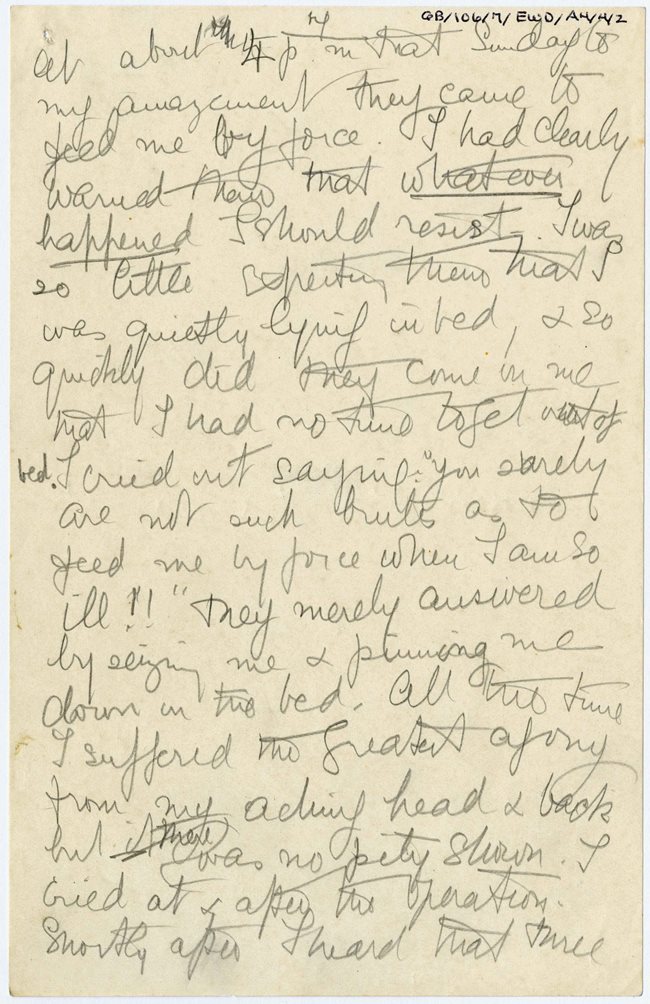 GB/106/7/EWD/A4/4/2
At about 4 p m that Sunday to
my amazement they came to
feed me by force. I had clearly
warned them that whatever
happened I should resist. I was
so little expecting them that I
was quietly lying in bed, & so
quickly did they come in me
that I had no time to get out of
bed. I cried out saying: "you surely
are not such brutes as to
feed me by force when I am so
ill!!" They merely answered
by seizing me & pinning me
down in the bed. All the time
I suffered the greatest agony
from my aching head & back
but there was no pity shown. I
cried at & after the operation.
Shortly after I heard that three